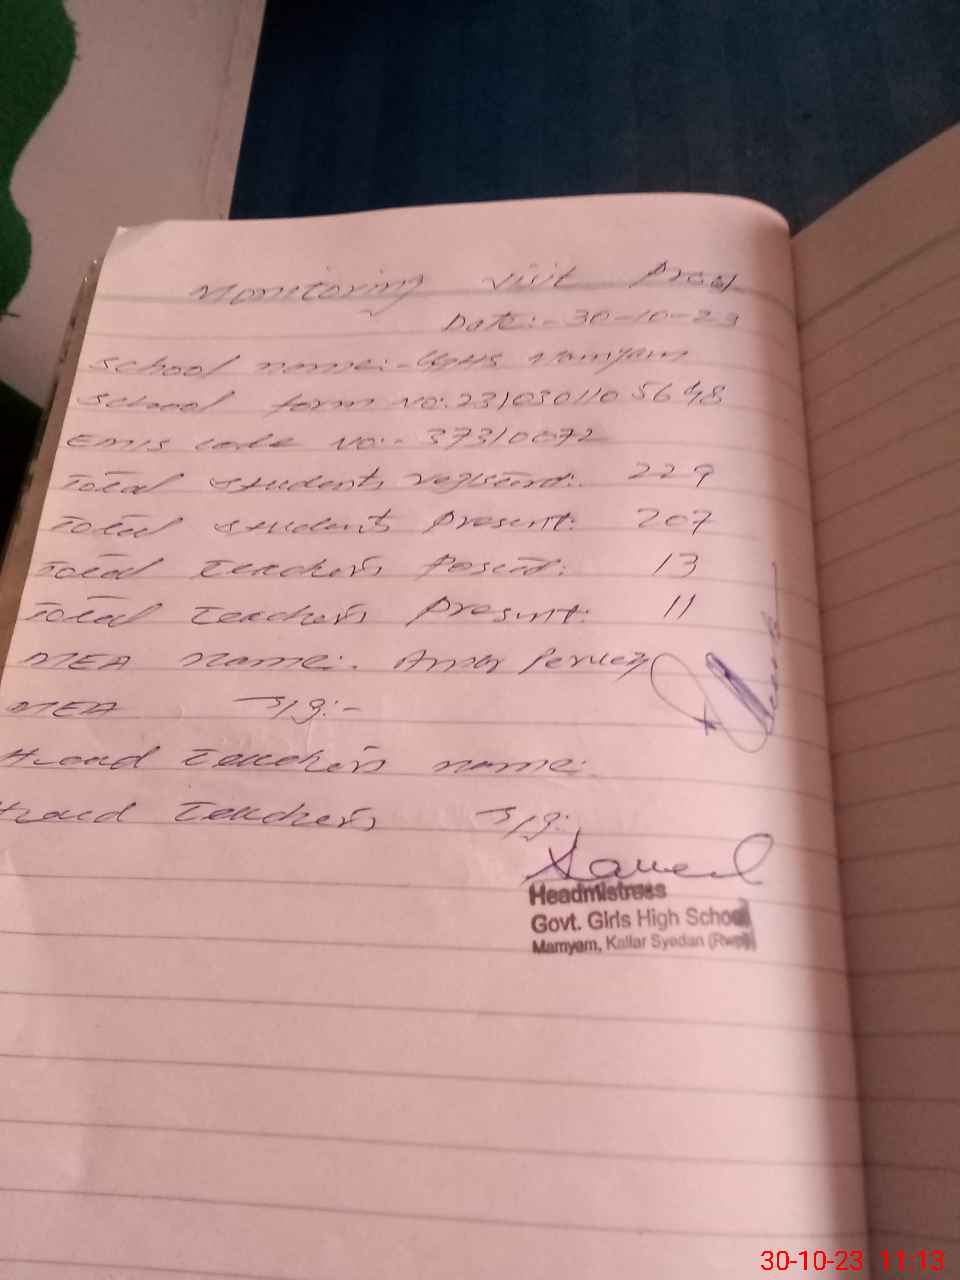 Monitoring Visit Proof
Date:- 30-10-23
School name:- GGHS Mamyam
School form No: 23103011056 48
Emis code No:- 37310072
Total students registerd: 229
Total students Present: 207
Total Teachers Posted: 13
Total Teachers Present: 11
MEA name:- Amer Pervez
MEA Sig:-
Head Teachers name:
Head Teachers Sig:
Headmistress
Govt. Girls High School
Mamyam, Kallar Syedan (Rwp)
30-10-23 11:13